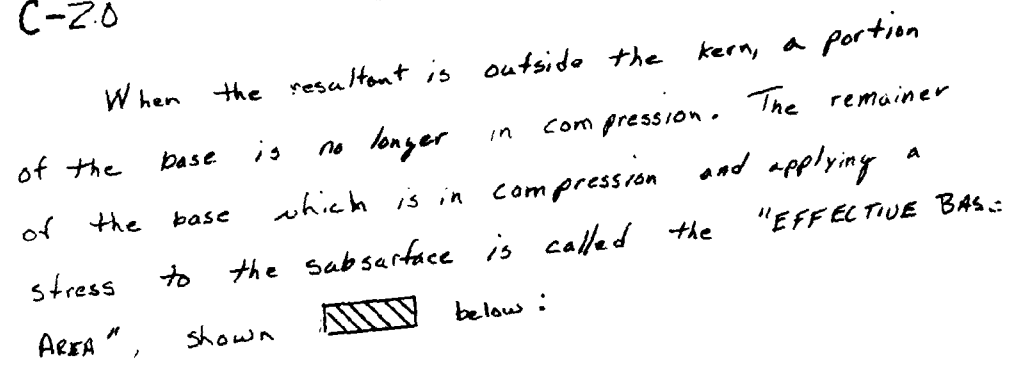 C-2.0
When the resultant is outside the kern, a portion
of the base is no longer in compression. The remainer
of the base which is in compression and applying a
stress to the subsurface is called the "EFFECTIVE BASE
AREA", shown below: